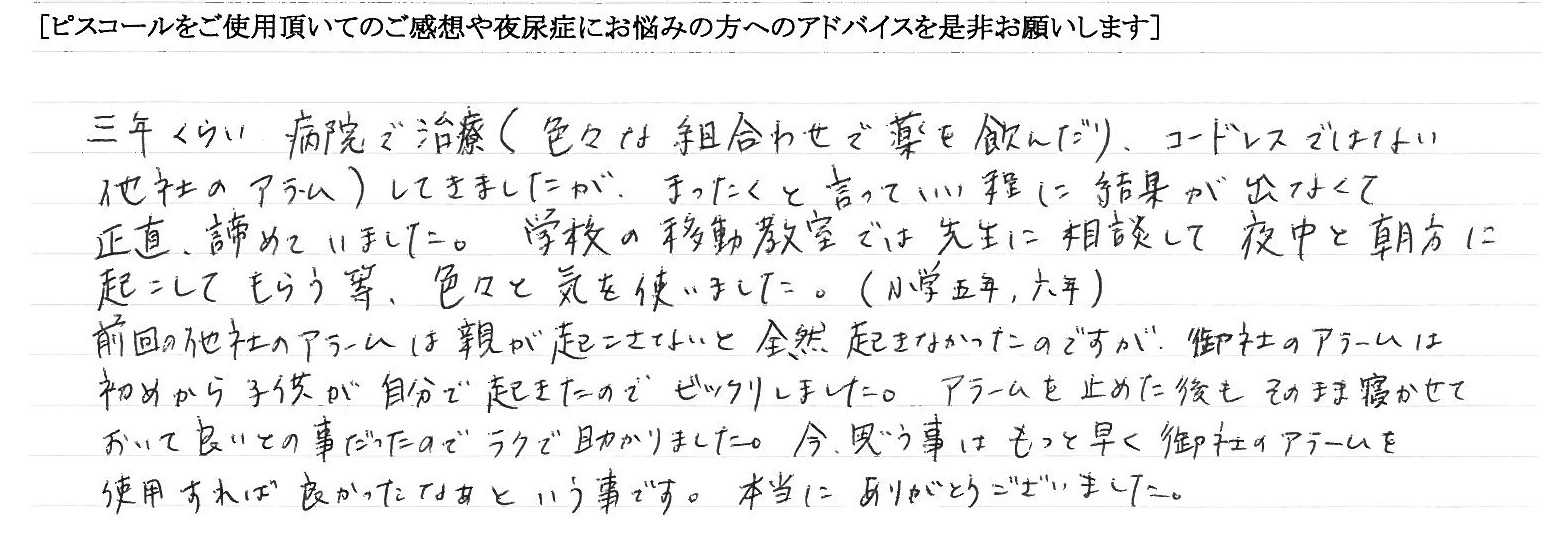 [ピスコールをご使用頂いてのご感想や夜尿症にお悩みの方へのアドバイスを是非お願いします]
三年くらい 病院で治療(色々な組合わせで薬を飲んだり、コードレスではない
他社のアラーム)してきましたが、まったくと言っていい程に結果が出なくて
正直、諦めていました。 学校の移動教室では先生に相談して夜中と朝方に
起こしてもらう等、色々と気を使いました。(小学五年,六年)
前回の他社のアラームは親が起こさないと全然起きなかったのですが、御社のアラームは
初めから子供が自分で起きたのでビックリしました。 アラームを止めた後もそのまま寝かせて
おいて良いとの事だったのでラクで助かりました。今、思う事はもっと早く御社のアラームを
使用すれば良かったなあという事です。 本当にありがとうございました。